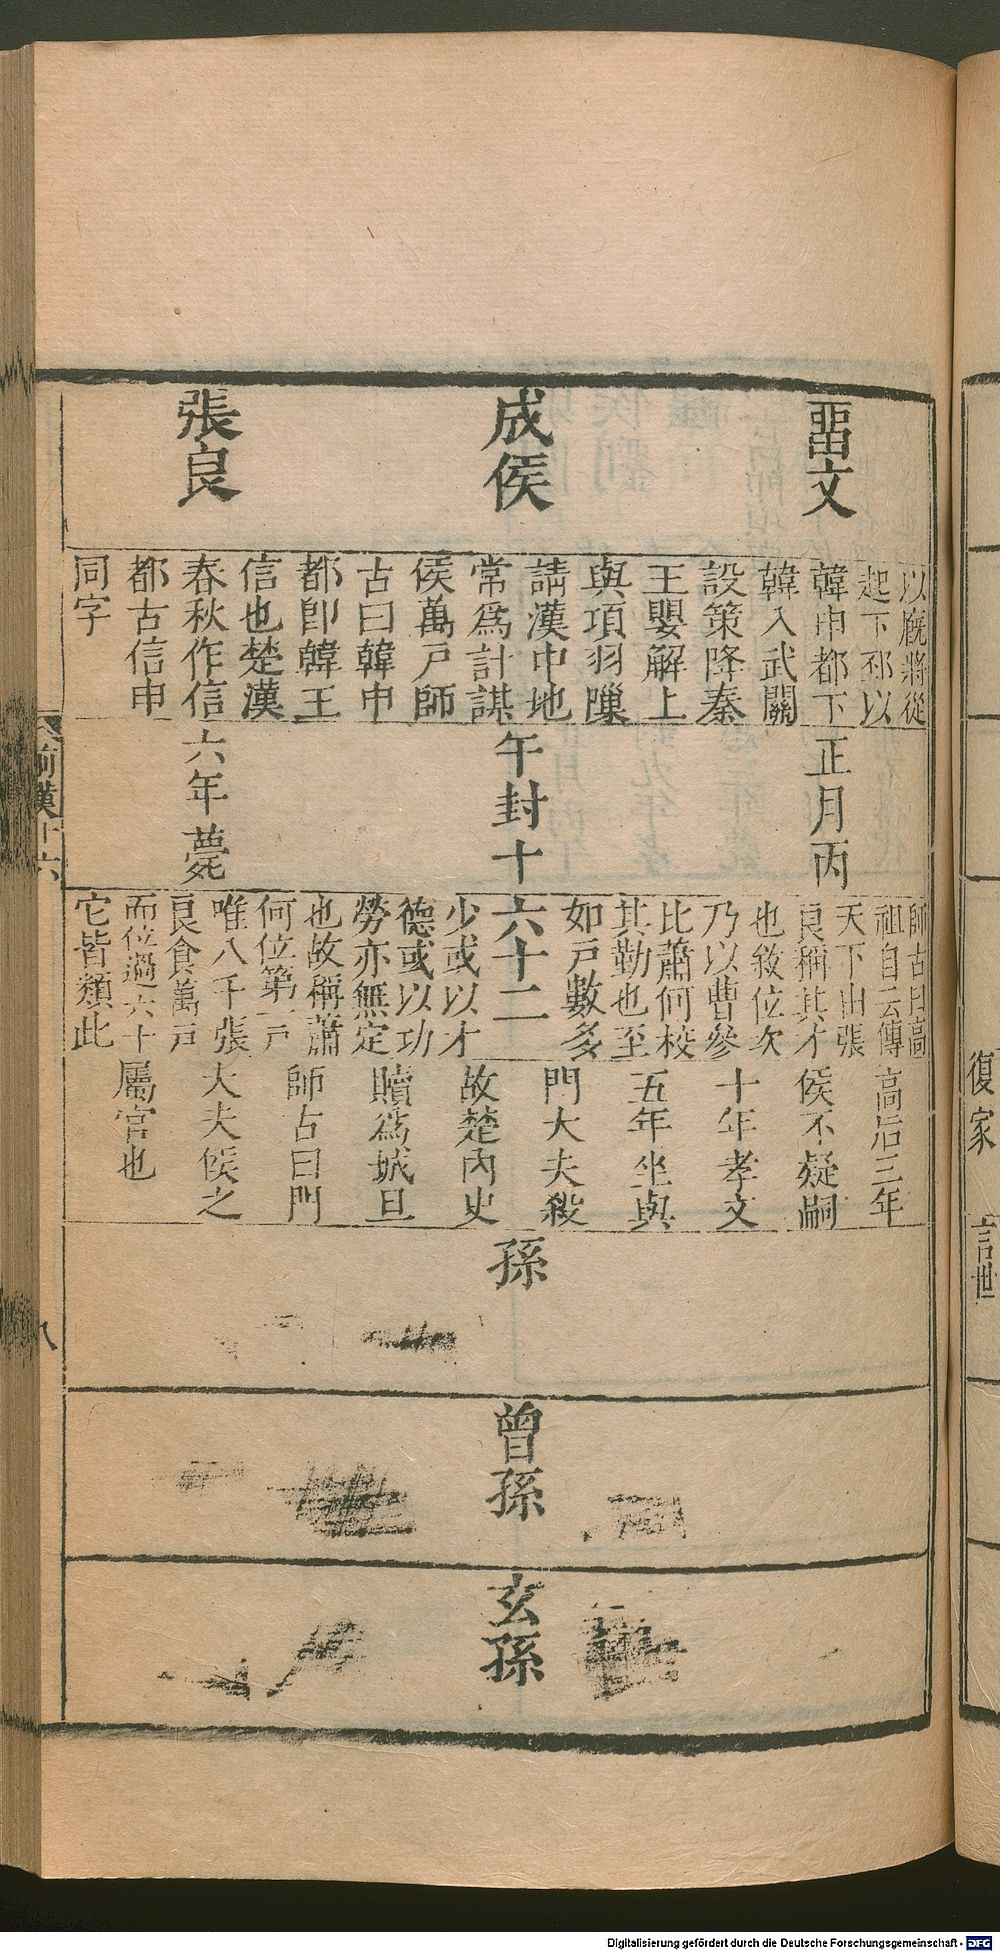 畱文
成侯
張良
以廐將從
起下邳以
韓申都下
韓入武關
設策降秦
王嬰解上
與項羽隟
請漢中地
常爲計謀
侯萬戸師
古曰韓申
都卽韓王
信也楚漢
春秋作信
都古信申
同字
正月丙
午封十
六年薨
六十二
師古曰高
祖自云傳
天下由張
良稱其才
也敘位次
乃以曹參
比蕭何校
其勤也至
如戸數多
少或以才
德或以功
勞亦無定
也故稱蕭
何位第一戸
唯八千張
良食萬戸
而位過六十
它皆類此
高后三年
侯不疑嗣
十年孝文
五年坐與
門大夫殺
故楚內史
贖爲城旦
師古曰門
大夫侯之
屬官也
孫
曾孫
玄孫
前漢十六
八
復家
言世
Digitalisierung gefördert durch die Deutsche Forschungsgemeinschaft - DFG